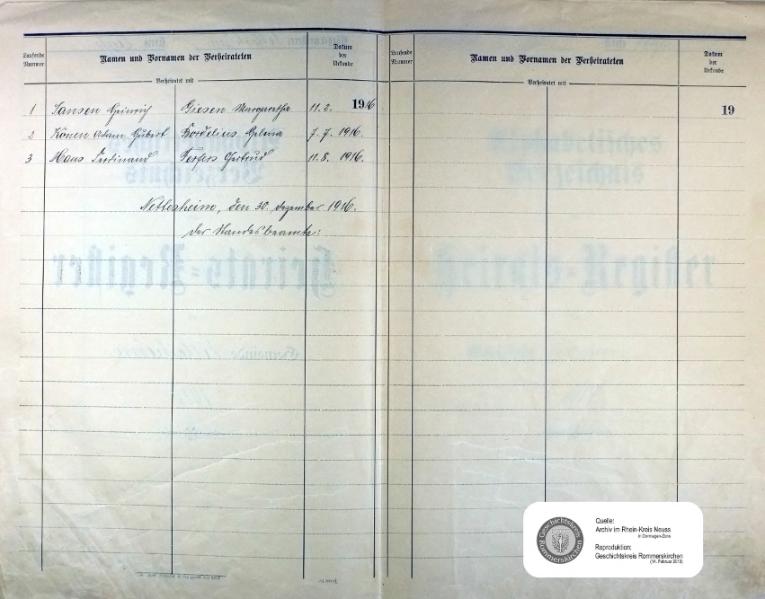 Laufende Nummer
Namen und Vornamen der Verheirateten
Verheiratet mit
Datum der Urkunde
1 Jansen Heinrich Giesen Margaretha 11. 2. 1916
2 Könen Adam Hubert Cordelius Helena 7. 7. 1916.
3 Haas Ferdinand Gertrud 11. 8. 1916.
Nettesheim, den 30. Dezember 1916.
Der Standesbeamte:
Laufende Nummer
Namen und Vornamen der Verheirateten
Verheiratet mit
Datum der Urkunde
19
Alphabetisches
Verzeichnis
Heirats=Register
Geschichtskreis Rommerskirchen
Quelle:
Archiv im Rhein-Kreis Neuss
in Dormagen-Zons
Reproduktion:
Geschichtskreis Rommerskirchen